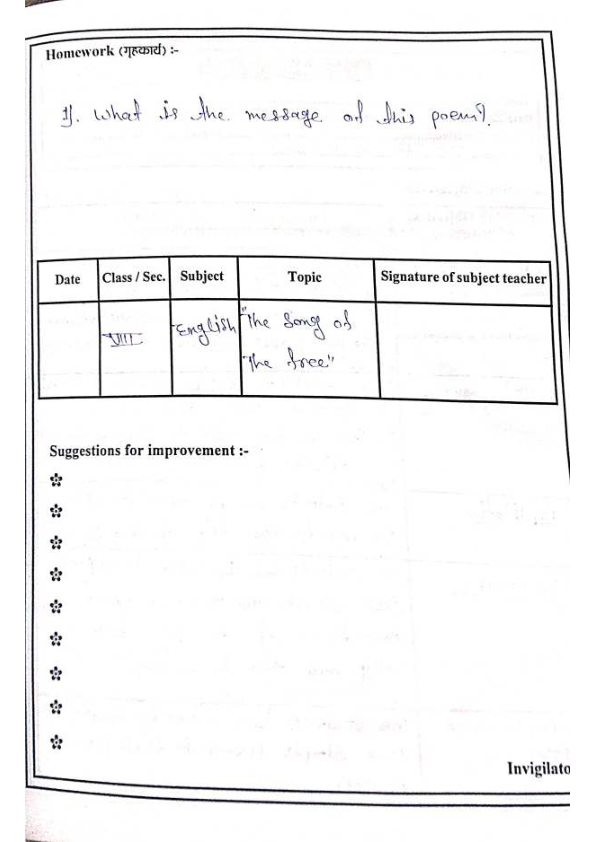 Homework (गृहकार्य) :-
1). What is the message of this poem?
Date Class / Sec. Subject Topic Signature of subject teacher
VIII English "The Song of
The free"
Suggestions for improvement :-
Invigilato